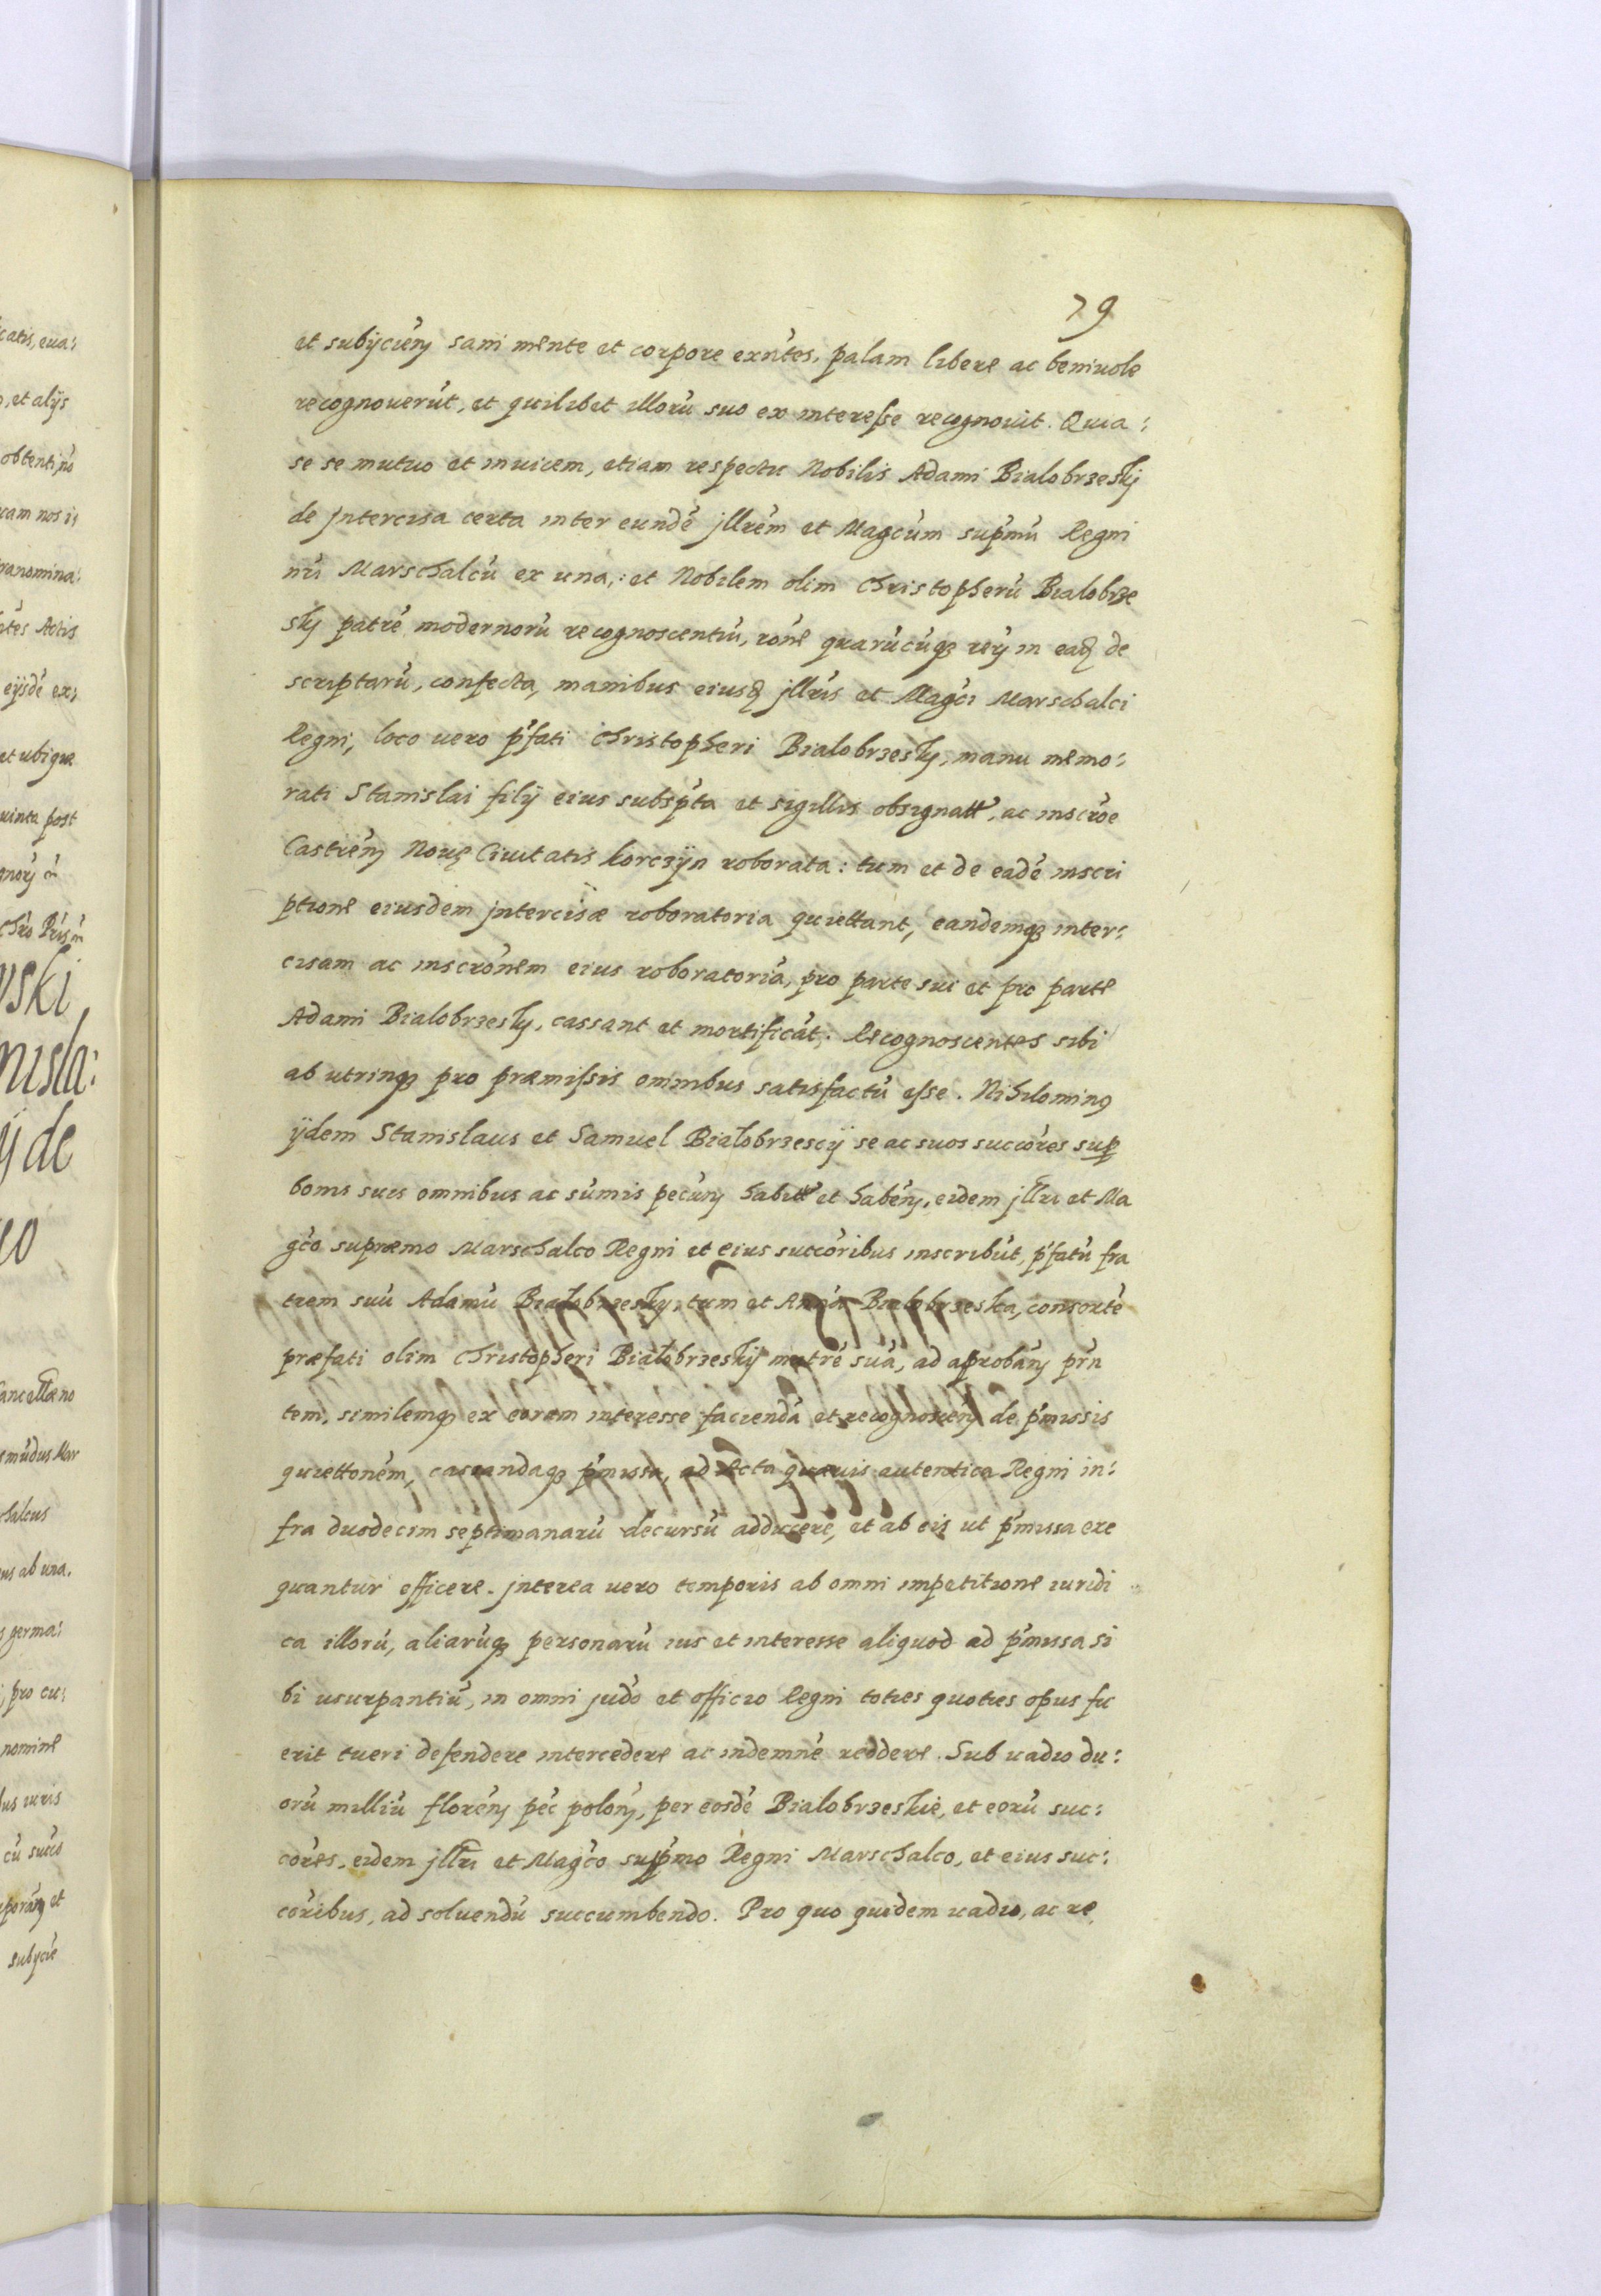 79
et subÿcień sani mente et corpore exńtes, palam libere ac beniuole
recognouerút, et quilibet illorú suo ex interesse recognouit. Quia:
se se mutuo et inuicem, etiam respectu Nobilis Adami Bialobrzeskÿ
de jntercisa certa inter eundé jllrém et Magcúm supŕmú Regni
nú Marschalcú ex una,: et Nobilem olim Christopherú Bialobrze
skÿ patré modernorú recognoscentiú, róne quarúcúq3 reÿ in ead de
scriptarú, confecta, manibus eiusd jllrís et Magći Marschalci
Regni, loco uero pŕfati Christopheri Bialobrzeskÿ, manu memo:
rati Stanislai filÿ eius subspŕta et sigillis obsignatt, ac inscróe
Castreń Nouę Ciuitatis korczÿn roborata: tum et de eadé inscri
ptione eiusdem jntercisæ roboratoria quiettant, eandemq3 inter:
cisam ac inscrónem eius roboratoriá, pro parte sui et pro parte
Adami Bialobrzeskÿ, cassant et mortificát. Recognoscentes sibi
ab utrinq3 pro præmissis omnibus satisfactú esse. Nihilomin9
ÿdem Stanislaus et Samuel Bialobrzescÿ se ac suos succóres sup
bonis suis omnibus ac súmis pecuń habitt et habéń, eidem jllri et Ma
gćo supræmo Marschalco Regni et eius succóribus inscribút, pŕfatú fra
trem suú Adamú Bialobrzeskÿ, tum et Anná Bialobrzeska, consorté
præfati olim Christopheri Bialobrzeskÿ matré suá, ad aprobań prńn
tem, similemq3 ex eorum interesse faciendá et recognosceń de pŕmissis
quiettońem, cassandaq3 pŕmissa, ad Acta quæuis autentica Regni in:
fra duodecim septimanarú decursú adducere, et ab eis ut pŕmissa exe
quantur efficere. jnterea uero temporis ab omni impetitione iuridi
ca illorú, aliarúq3 personarú ius et interesse aliquod ad pŕmissa si
bi usurpantiú, in omni judó et officio Regni toties quoties opus fu
erit tueri defendere intercedere ac indemné reddere. Sub uadio du:
orú milliú floreń peć poloń, per eosdé Bialobrzeskie, et eorú suc:
córes, eidem jllri et Magćo supŕmo Regni Marschalco, et eius suc:
córibus, ad soluendú succumbendo. Pro quo quidem uadio, ac re